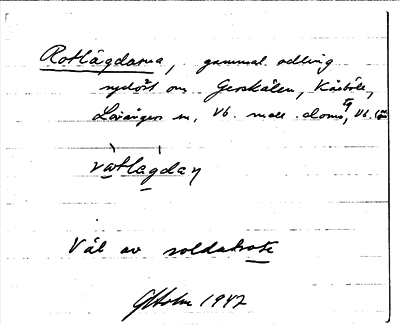 Rotlägdarna, gammal odling
sydöst om Gerskälen, Kåsböle,
Lövångers sn, Vb. mell. doms, Vb. län
vatlagdaɳ
Väl av soldatrote
GHolm 1947